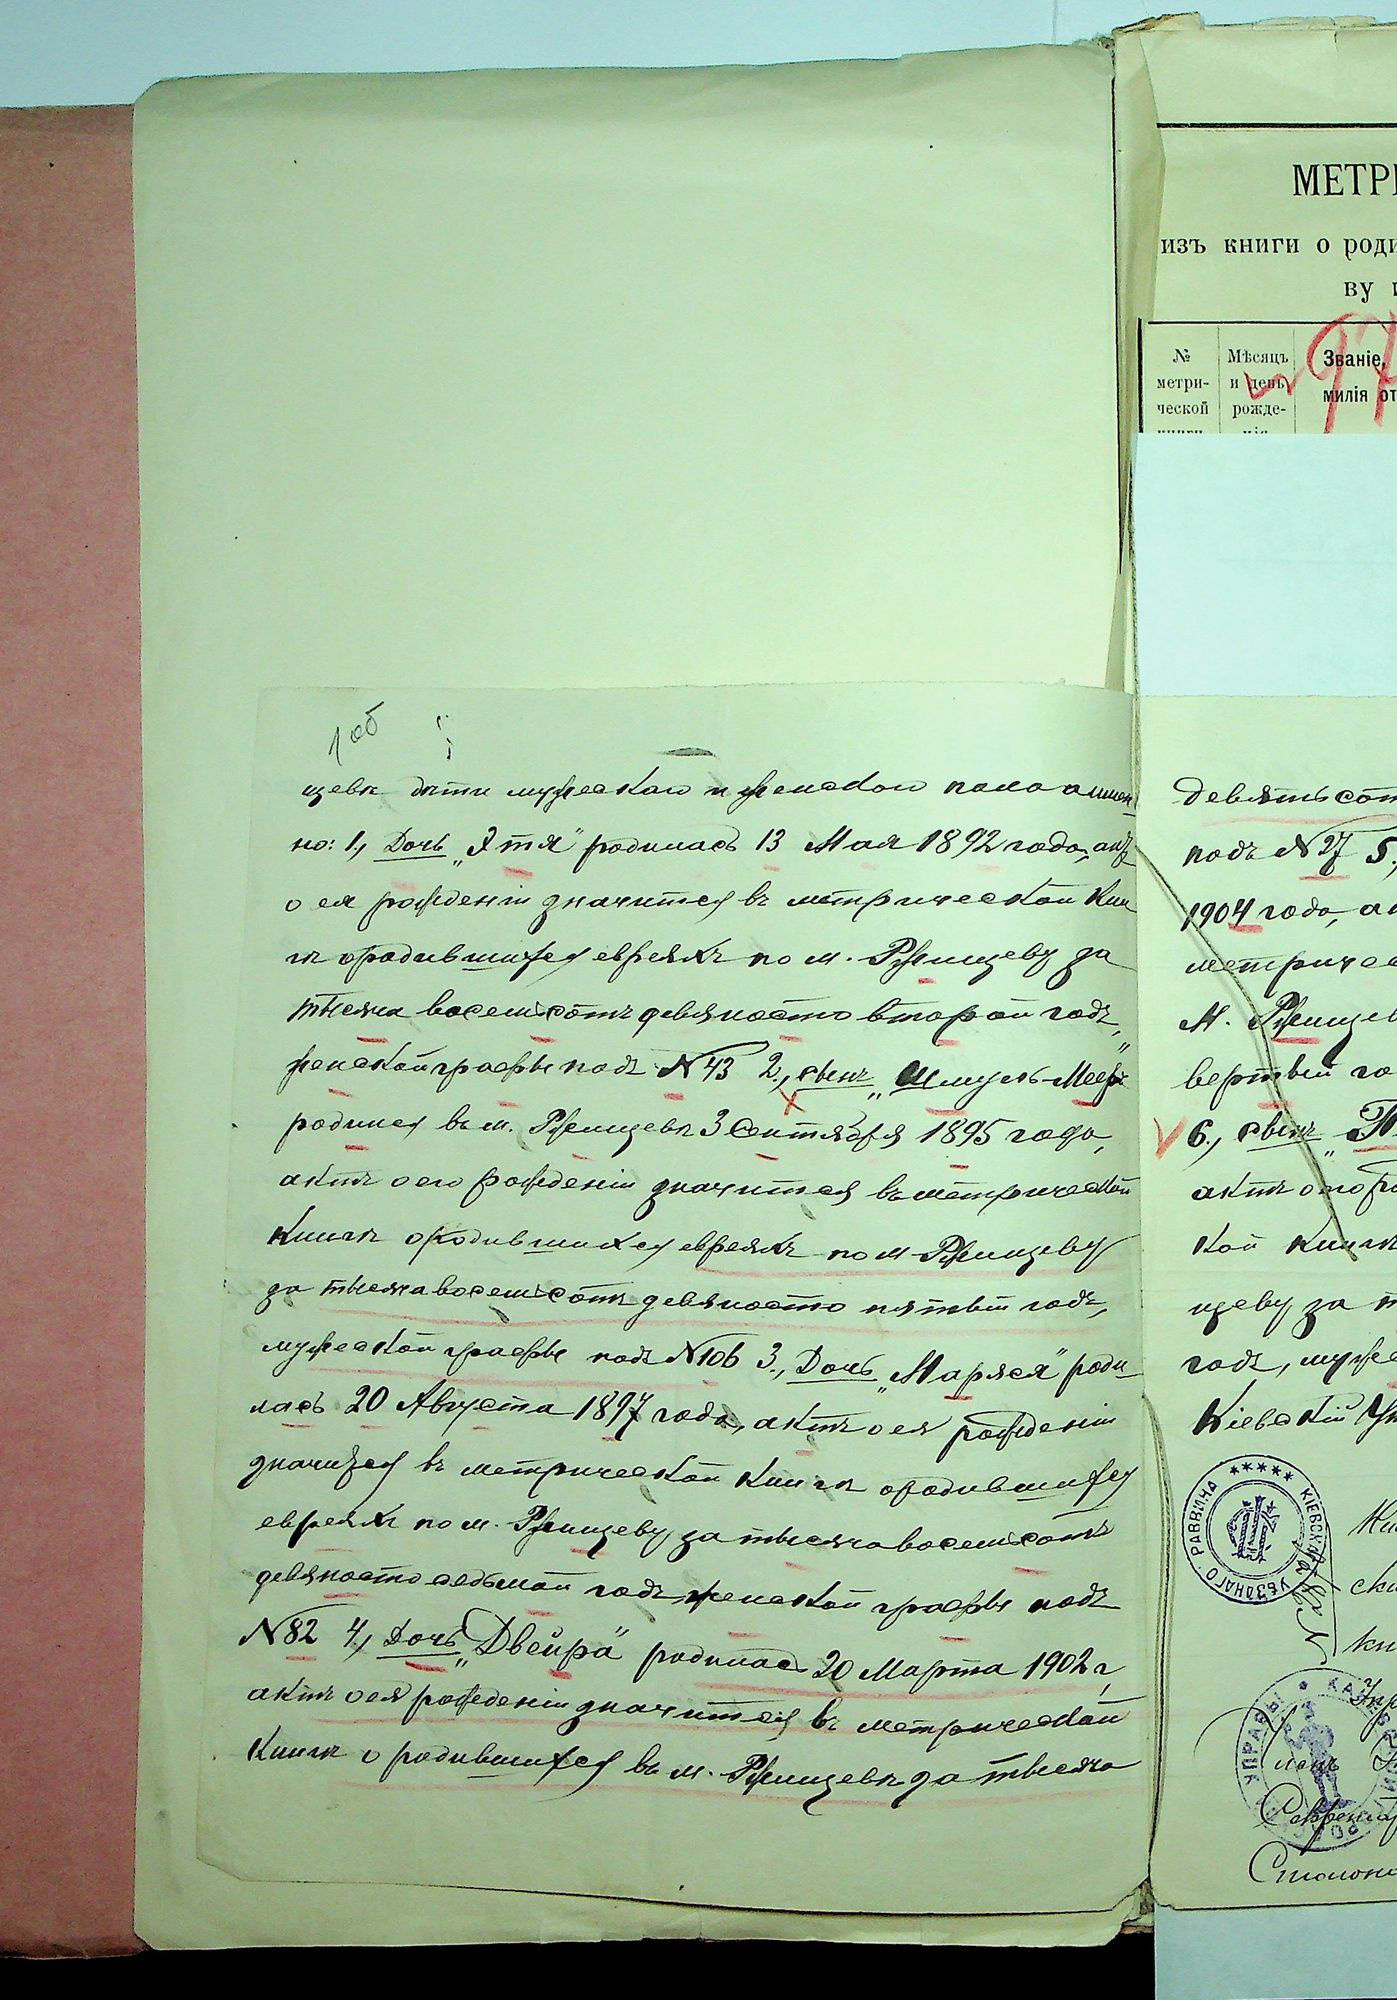 1 об
щевѣ дѣти мужескаго и женскаго пола а имен
но: 1., Дочь „Этя" родилась 13 Мая 1892 года, актъ
о ея рожденіи значится въ метрической Кни
гѣ о родившихся евреяхъ по м. Ржищеву за
тысяча восемьсотъ девяносто второй годъ,
женской графы подъ №43 2., сынъ „Шмуль-Меер"
родился въ м. Ржищевѣ 3 Сентября 1895 года,
актъ о его рожденіи значится въ метрической
Книгѣ о родившихся евреяхъ по м. Ржищеву
за тысяча восемьсотъ девяносто пятый годъ,
мужеской графы подъ №106 3., Дочь „Маряся" роди
лась 20 Августа 1897 года, актъ о ея рожденіи
значится въ метрической Книгѣ о родившихся
евреяхъ по м. Ржищеву за тысяча восемьсотъ
девяносто седьмой годъ женской графы подъ
№82 4., Дочь „Двейра" родилась 20 Марта 1902 г,
актъ о ея рожденіи значится въ метрической
Книгѣ о родившихся въ м. Ржищевѣ за тысяча
МЕТРИ
изъ книги о роди
ву и
№ метри- ческой
Мѣсяцъ и день рожде-
Званіе,
милія от
97
девятьсот
подъ №27 5.,
1904 года, ак
метричес
м. Ржищев
вертый го
6., сынъ
актъ о его ро
кой книгѣ
щеву за т
годъ, муже
Кіевскій У
КІЕВСКАГО УѢЗДНАГО РАВВИНА
УПРАВЫ
Секретар
Столона